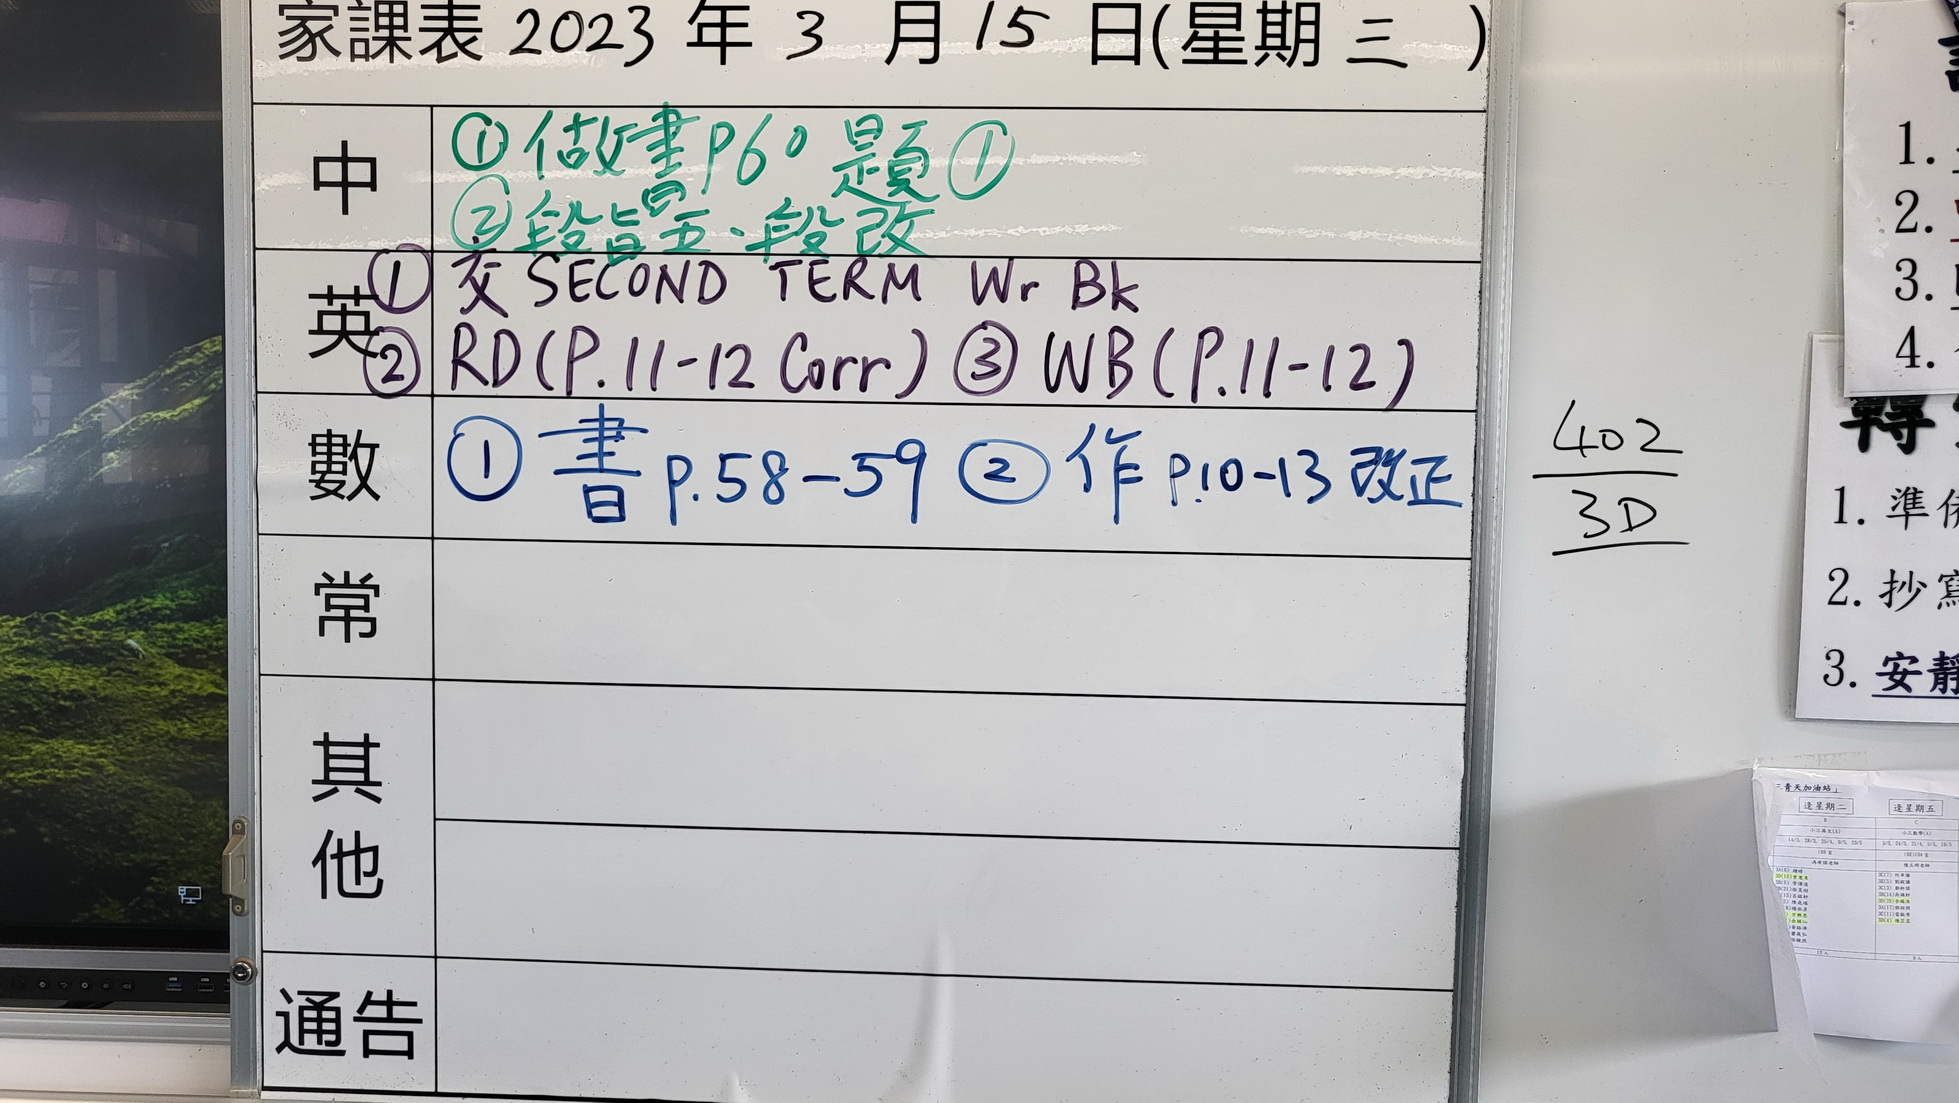 家課表 2023 年 3 月 15 日(星期 三 )
中
① 做書 p60 題①
② 段旨
段改
英
① 交 SECOND TERM Wr Bk
② RD(P.11-12 Corr) ③ WB(P.11-12)
數
① 書 p.58-59 ② 作 p.10-13 改正
常
其他
通告
402
3D
1.
2.
3.
4.
轉
1. 準備
2. 抄寫
3. 安靜
青天加油站」
逢星期二
逢星期五